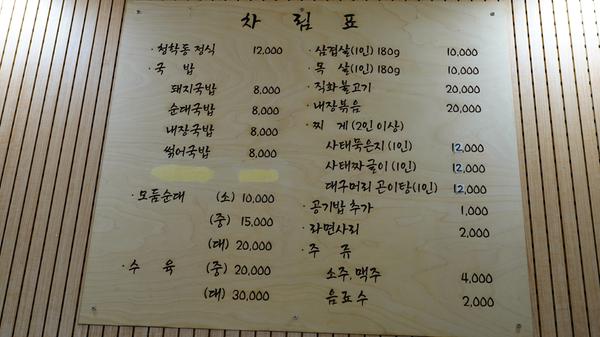 차 림 표
· 청학동 정식 12,000
· 국 밥
돼지국밥 8,000
순대국밥 8,000
내장국밥 8,000
섞어국밥 8,000
· 모듬순대 (소) 10,000
(중) 15,000
(대) 20,000
· 수 육 (중) 20,000
(대) 30,000
· 삼겹살(1인) 180g 10,000
· 목 살(1인) 180g 10,000
· 직화불고기 20,000
· 내장볶음 20,000
· 찌 게 (2인 이상)
사태묵은지 (1인) 12,000
사태짜글이 (1인) 12,000
대구머리 곤이탕(1인) 12,000
· 공기밥 추가 1,000
· 라면사리 2,000
· 주 류
소주, 맥주 4,000
음료수 2,000